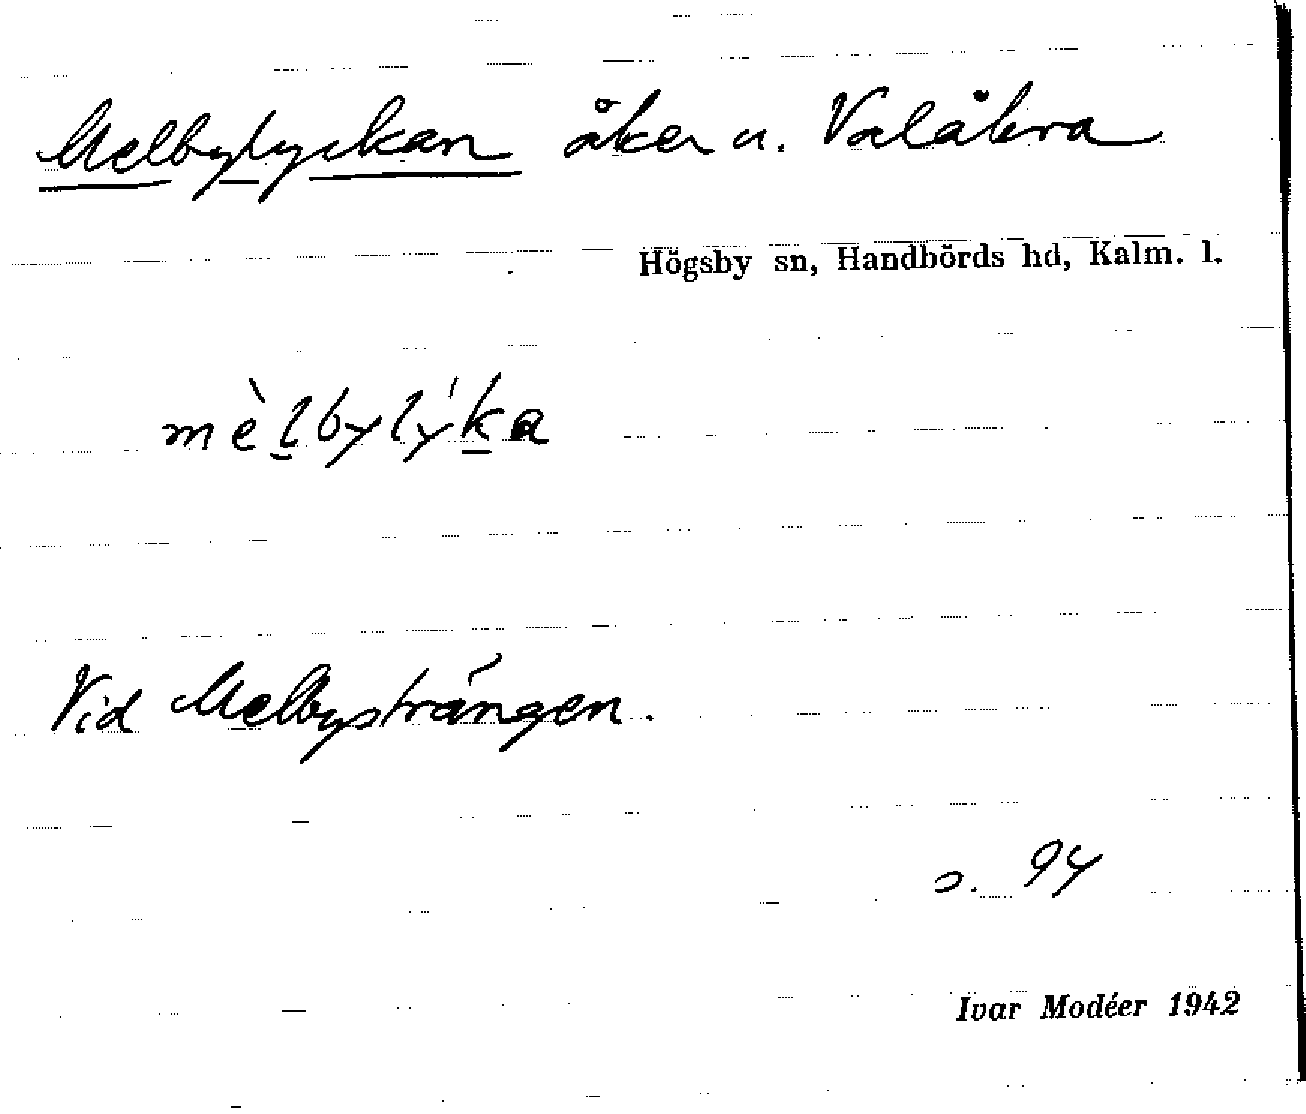 Melbylyckan åker u. Valåkra
Högsby sn, Handbörds hd, Kalm. l.
mèlbylýka
Vid Melbysträngen.
s. 94
Ivar Modéer 1942